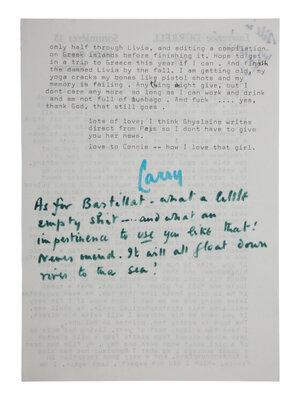 only half through Livia, and editing a compilation
on Greek islands before finishing it. Hope to get
in a trip to Greece this year if I can . And finish
the damned Livia by the fall. I am getting old, my
yoga cracks my bones like pistol shots and my
memory is failing . Anything might give, but I
dont care any more so long as I can work and drink
and am not full of lumbago . And fuck .... yes,
thank God, that still goes .
lots of love; I think Ghyslaine writes
direct from Paris so I dont have to give
you her news.
love to Connie -- how I love that girl.
Larry
As for Bastillat - what a little
empty shit - .. and what an
impertinence to use you like that!
Never mind. It will all float down
river to the sea!